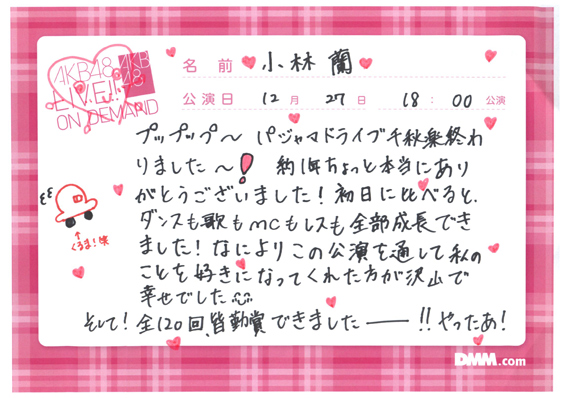 AKB48
LIVE!!
ON DEMAND
AKB
48
名前 小林 蘭
公演日 12月 27日 18:00 公演
プップップ〜 パジャマドライブ千秋楽終わ
りました〜! 約1年ちょっと本当にあり
がとうございました!初日に比べると、
ダンスも歌もMCもレスも全部成長でき
ました!なによりこの公演を通して私の
ことを好きになってくれた方が沢山で
幸せでした
そして!全120回、皆勤賞できました――!!やったあ!
↑
くるま!笑
DMM.com